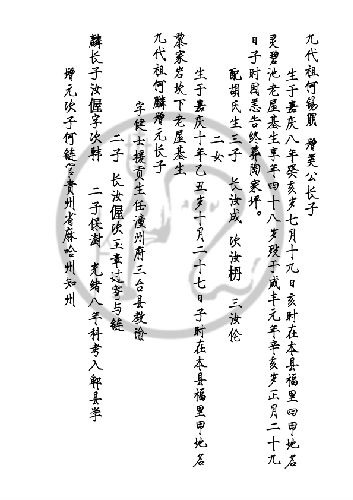 九代祖何锡贶 增美公长子
生于嘉庆八年癸亥岁七月十九日亥时在本县福里四甲地名
灵碧池老屋基生享年四十八岁殁于咸丰元年辛亥岁正月二十九
日子时因恙告终葬陶家坪。
配胡氏生三子 长汝成 次汝枬 三汝伦
二女
生于嘉庆十年乙丑岁十月二十七日子时在本县福里四甲地名
黎家岩坎下老屋基生
九代祖何麟增元长子
字徒士拔贡生任潼州府三台县教谕
二子 长汝偓次玉章过寄与
麟长子汝偓字次韩 二子保澍 光绪八年科考入郫县学
增元次子何 官贵州省麻哈州知州